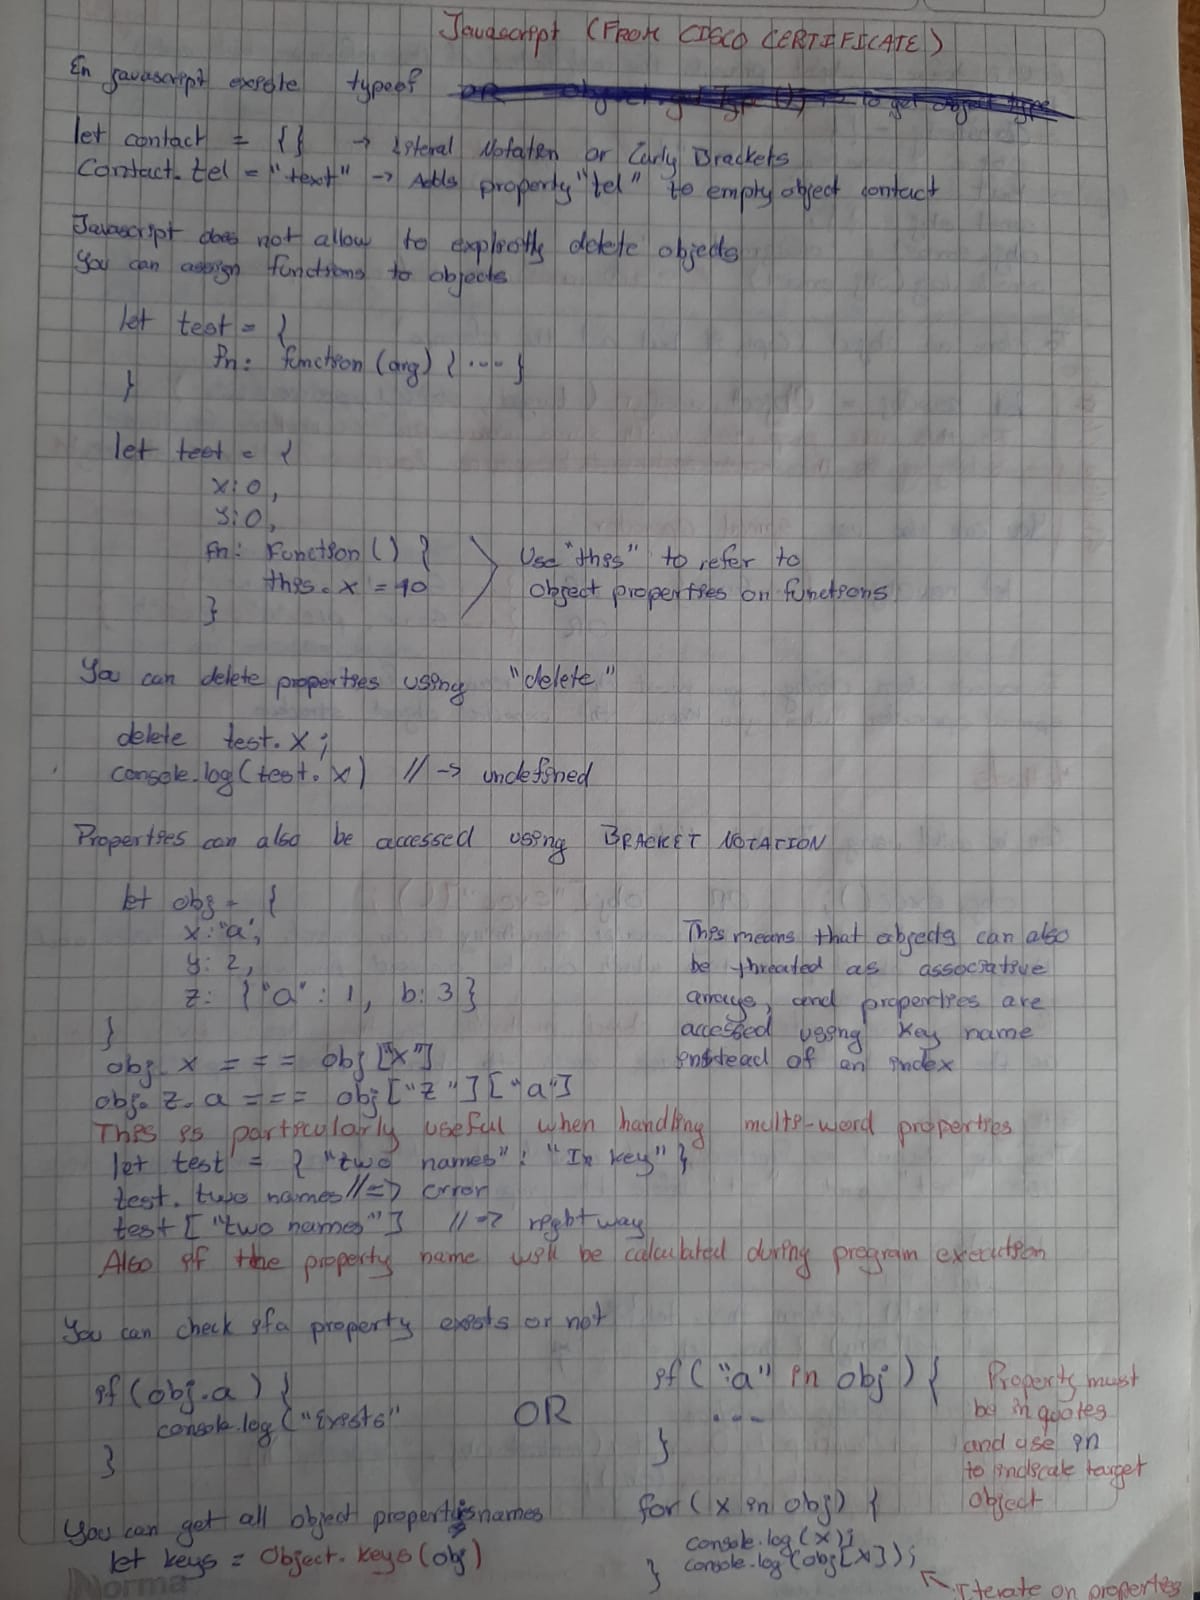 Javascript (FROM CISCO CERTIFICATE)
En javascript existe typeof
let contact = {} -> Literal Notation or Curly Brackets
Contact.tel = "text" -> Adds property "tel" to empty object contact
Javascript does not allow to explicitly delete objects
You can assign functions to objects
let test = {
fn: function (arg) { ... }
}
let test = {
x: 0,
y: 0,
fn: Function () {
this.x = 10
}
Use "this" to refer to
Object properties on functions
You can delete properties using "delete"
delete test.x;
console.log(test.x) // -> undefined
Properties can also be accessed using BRACKET NOTATION
let obj = {
x: "a",
y: 2,
z: { "a" : 1, b: 3 }
}
This means that objects can also
be threated as associative
arrays, and properties are
accessed using key name
instead of an index
obj. x === obj ["x"]
obj. z. a === obj ["z"] ["a"]
This is particularly useful when handling multi-word properties
let test = { "two names" : "In key" }
test. two names //=> error
test ["two names"] //=> right way
Also if the property name will be calculated during program execution
You can check if a property exists or not
if (obj.a) {
console.log ("Exists"
}
OR
if ("a" in obj) {
...
}
Property must
be in quotes
and use in
to indicate target
object
You can get all object properties names
let keys = Object.keys(obj)
for (x in obj) {
console.log (x);
console.log (obj[x]);
}
Iterate on properties
Norma